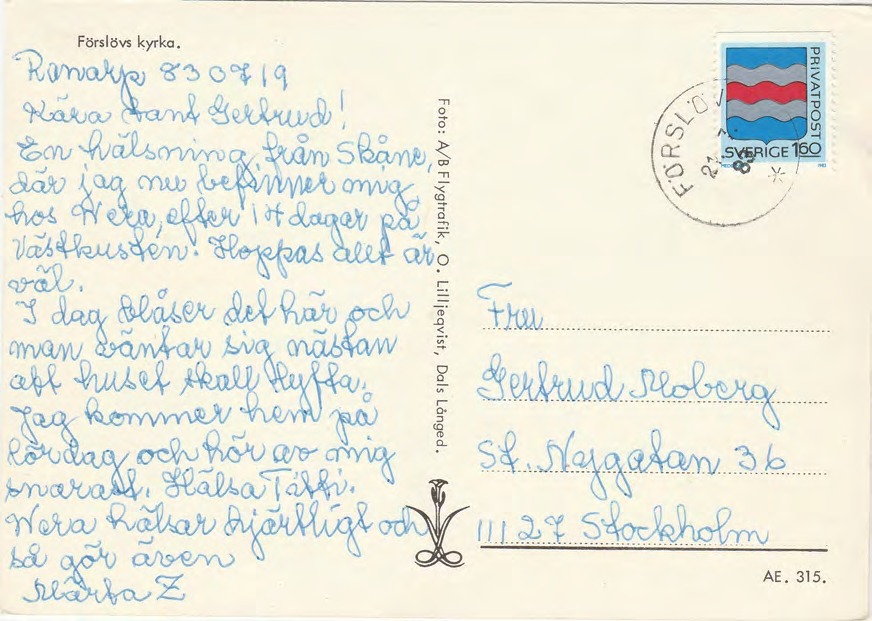 Förslövs kyrka.
Ranarp 830719
Kära tant Gertrud!
En hälsning från Skåne,
där jag nu befinner mig
hos Wera, efter 14 dagar på
Västkusten. Hoppas allt är
väl.
I dag blåser det här och
man väntar sig nästan
att huset skall lyfta.
Jag kommer hem på
lördag och hör av mig
snarast. Hälsa Titti.
Wera hälsar hjärtligt och
så gör även
Märta Z
Foto: A/B Flygtrafik, O. Lilljeqvist, Dals Långed.
PRIVATPOST
SVERIGE 160
FÖRSLÖV
21. 7.
83
Fru
Gertrud Moberg
St. Nygatan 36
111 27 Stockholm
AE. 315.